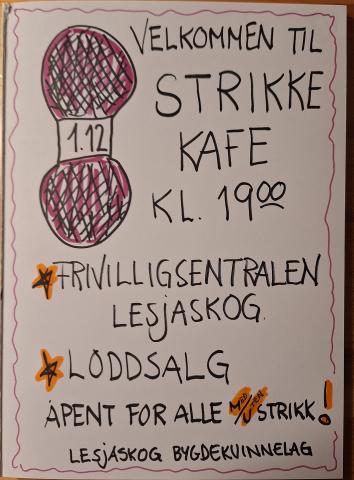 VELKOMMEN TIL
STRIKKE
KAFE
1.12
KL. 1900
FRIVILLIGSENTRALEN
LESJASKOG.
LODDSALG
ÅPENT FOR ALLE MED/UTEN STRIKK!
LESJASKOG BYGDEKVINNELAG